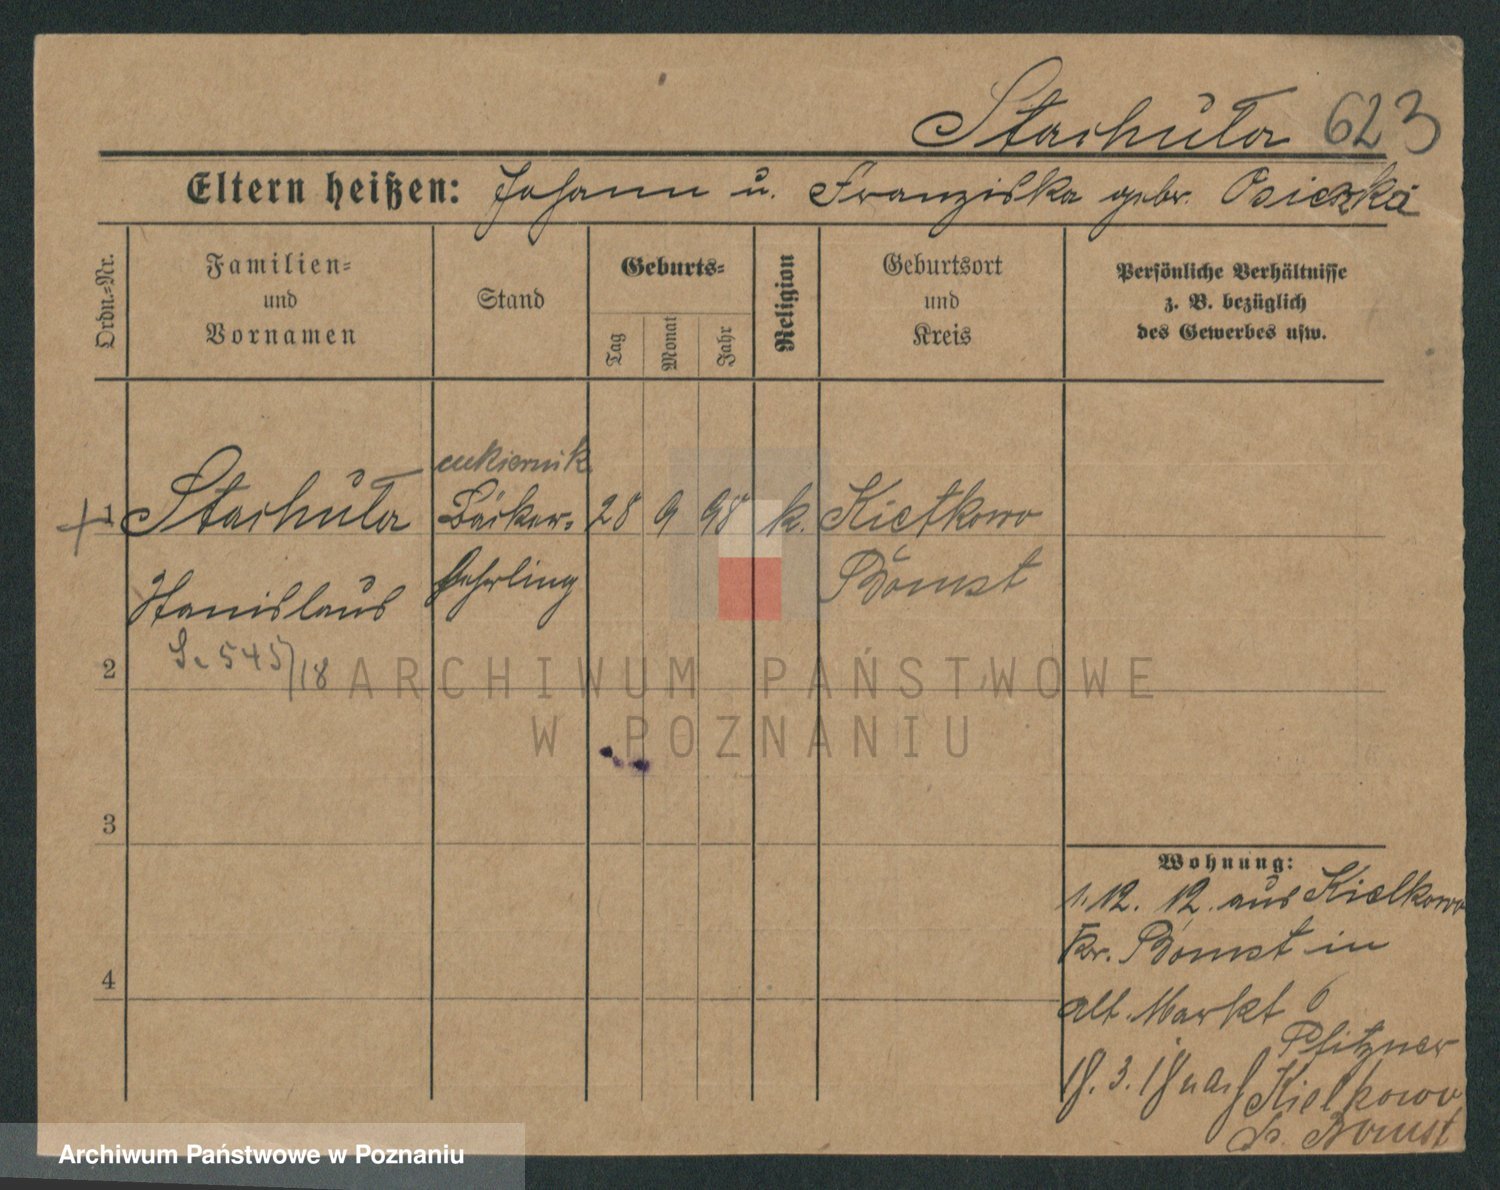 Stachuła 623
Eltern heißen: Johann u. Franziska gebr. Osiezka
Ordn.-Nr.
Familien-
und
Vornamen
Stand
Geburts-
Tag
Monat
Jahr
Religion
Geburtsort
und
Kreis
Persönliche Verhältnisse
z. B. bezüglich
des Gewerbes usw.
cukiernik
1 Stachuła Bäcker- 28 9 98 k. Kiełkowo
Stanislaus Lehrling Bomst
2 545/18
3
4
Wohnung:
1. 12. 12. aus Kielkowo
Kr. Bomst in
alt. Markt 6
Pfitzner
18. 3. 18 nach Kielkowo
Bomst
ARCHIWUM PAŃSTWOWE
W POZNANIU
Archiwum Państwowe w Poznaniu